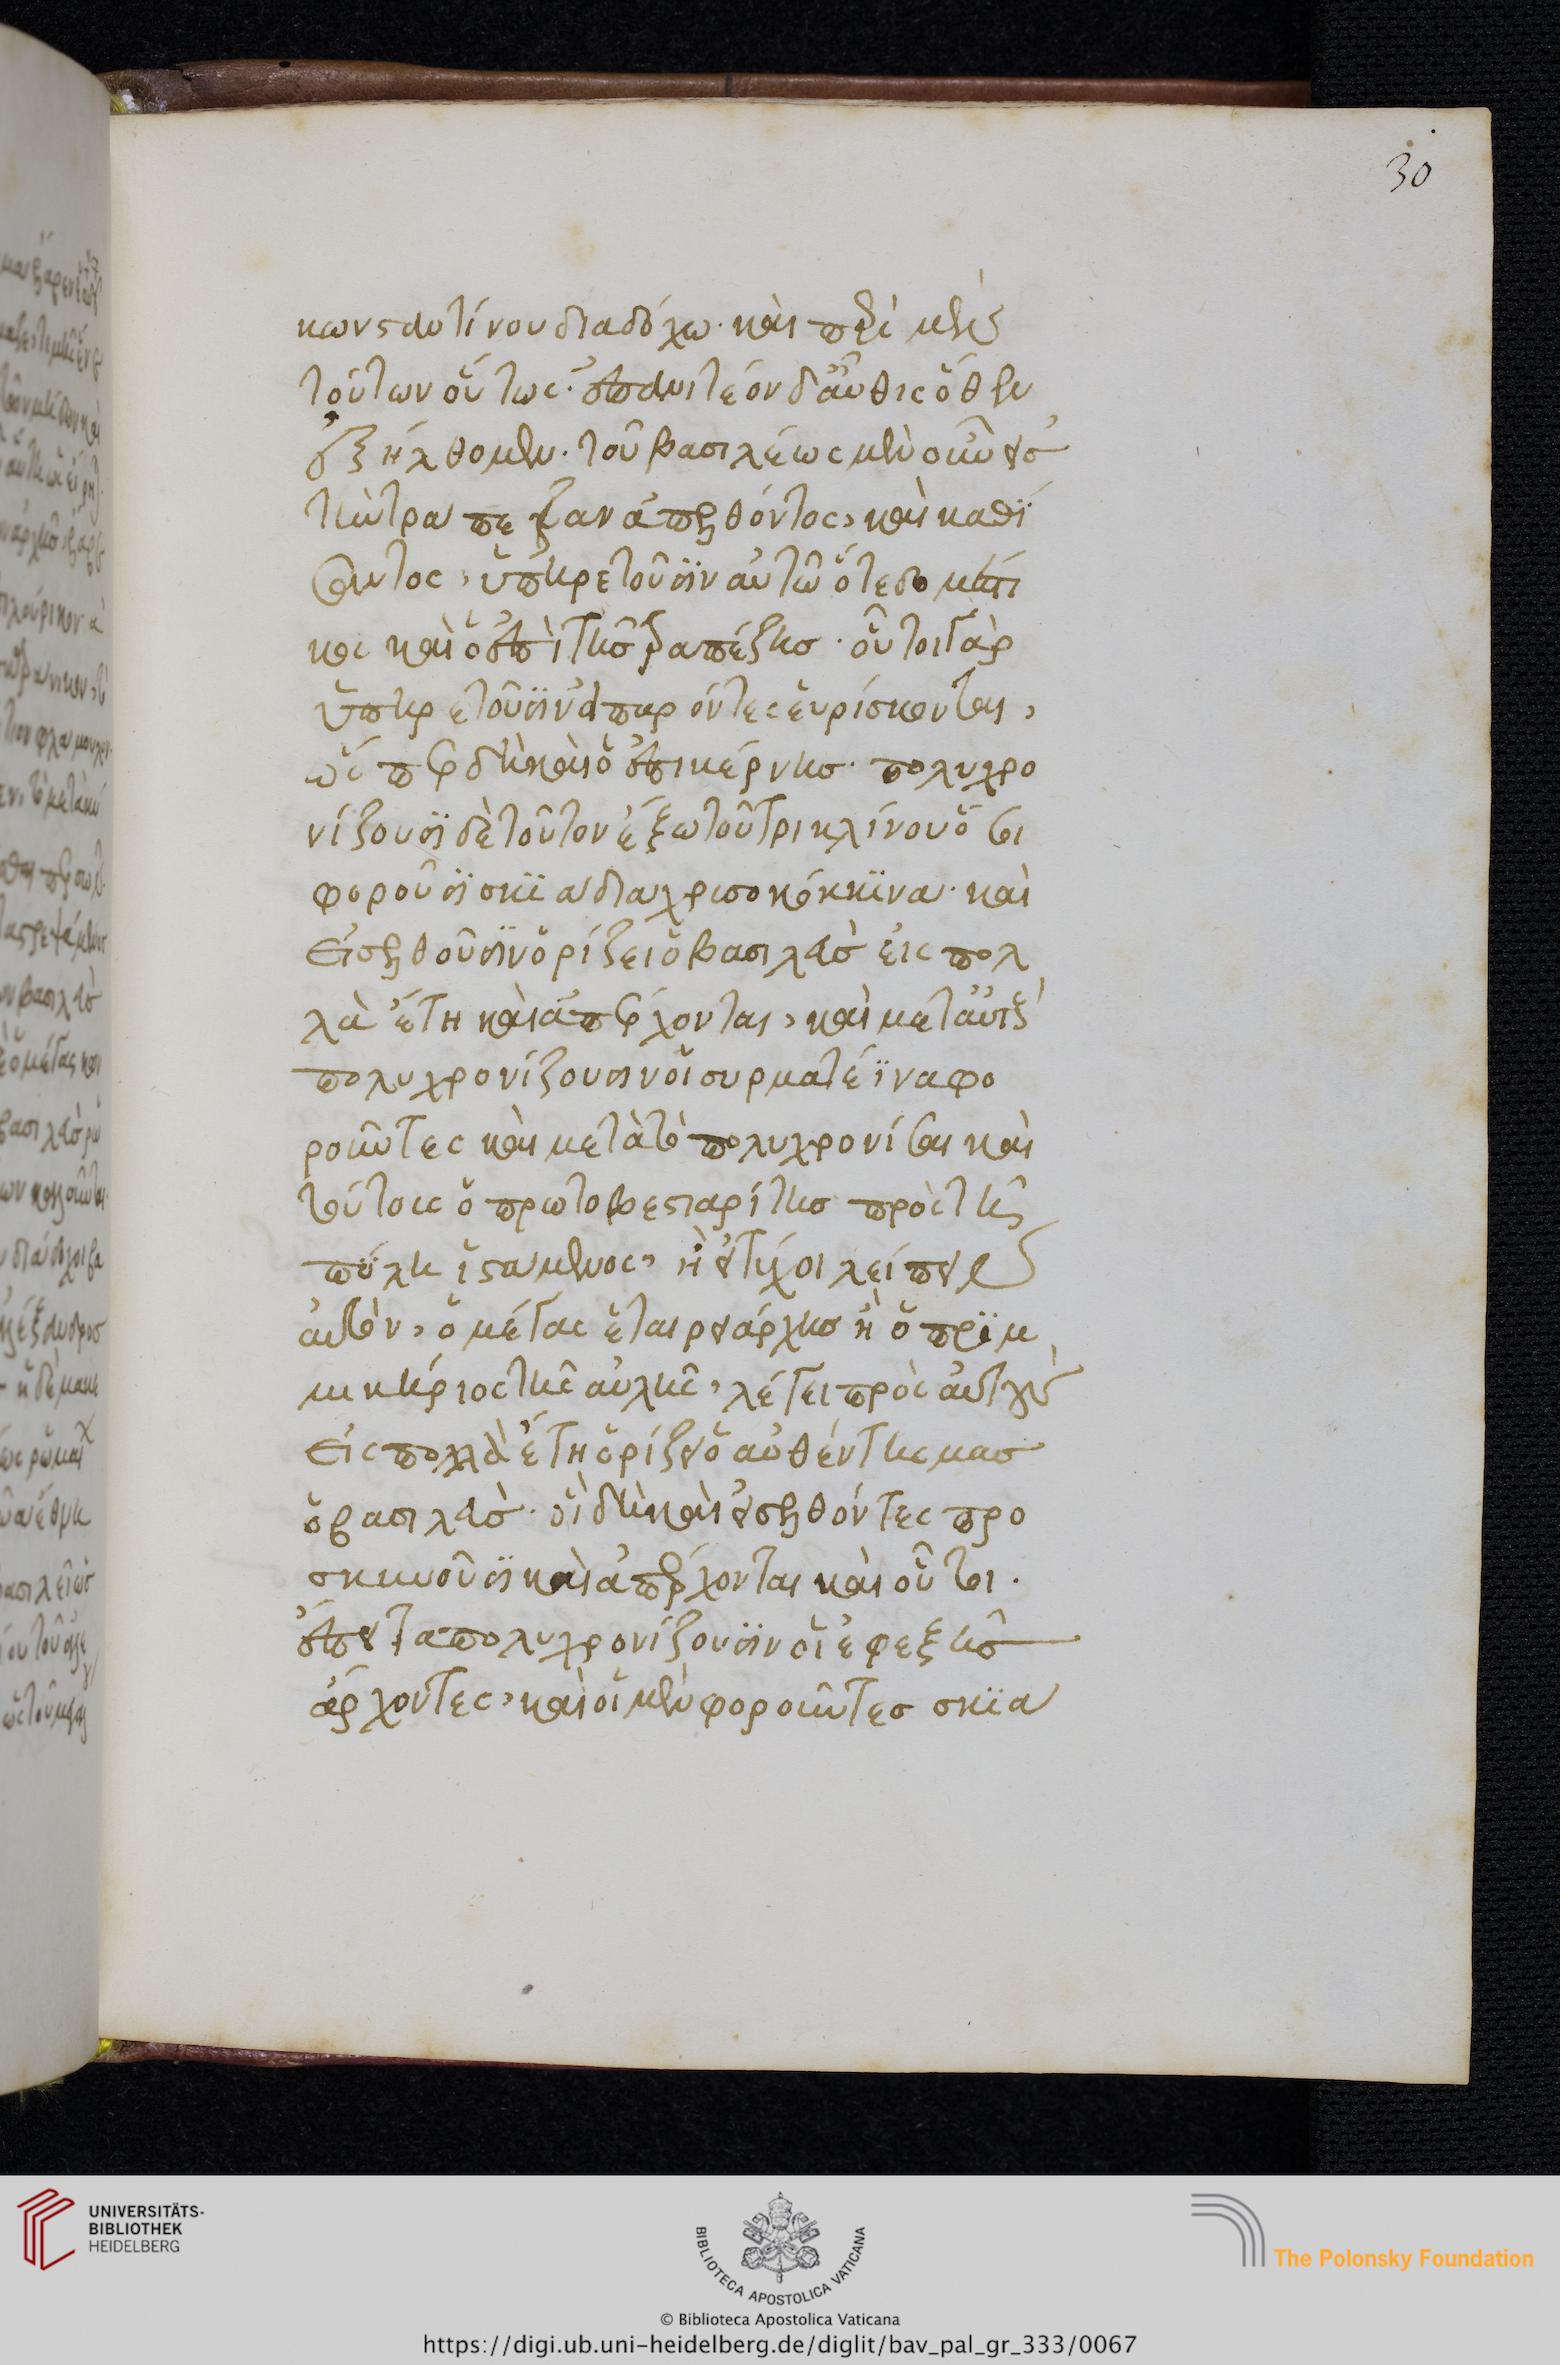 30
κωνσταντίνου διαδόχω· καὶ περὶ μὲν
τούτων οὕτως· ἐπανιτέον δ' αὖθις ὅθεν
ἐξήλθομεν. τοῦ βασιλέως μὲν οὖν εἰς
τὴν τράπεζαν ἀπελθόντος, καὶ καθί
σαντος, ὑπηρετοῦσιν αὐτῶ ὅ τε δομέστι
κος καὶ ὁ ἐπὶ τῆς τραπέζης· οὗτοι γὰρ
ὑπηρετοῦσιν εἰ παρόντες εὑρίσκονται,
ὥσπερ δὴ καὶ ὁ ἐπικέρνης· πολυχρο
νίζουσι δὲ τοῦτον ἔξω τοῦ τρικλίνου ὅσοι
φοροῦσι σκιάδια χρισοκόκκινα· καὶ
εἰσελθοῦσιν ὁρίζει ὁ βασιλεὺς εἰς πολ
λὰ ἔτη καὶ ἀπέρχονται, καὶ μετ' αὐτοὺς
πολυχρονίζουσιν οἱ συρματέϊνα φο
ροῦντες καὶ μετὰ τὸ πολυχρονίσαι καὶ
τούτοις ὁ πρωτοβεστιαρίτης πρὸς τῆ
πύλη ἱστάμενος, ἢ εἰ τύχοι λείπειν
αὐτὸν, ὁ μέγας ἑταιρειάρχης ἢ ὁ πριμ
μικήριος τῆς αὐλῆς, λέγει πρὸς αὐτοὺς
εἰς πολλὰ ἔτη ὁρίζει ὁ αὐθέντης μας
ὁ βασιλεὺς· οἱ δὴ καὶ εἰσελθόντες προ
σκυνοῦσι καὶ ἀπέρχονται καὶ οὗτοι.
ἔπειτα πολυχρονίζουσιν οἱ ἐφεξῆς
ἄρχοντες, καὶ οἱ μὲν φοροῦντες σκιά
UNIVERSITÄTS-
BIBLIOTHEK
HEIDELBERG
BIBLIOTECA APOSTOLICA VATICANA
The Polonsky Foundation
© Biblioteca Apostolica Vaticana
https://digi.ub.uni-heidelberg.de/diglit/bav_pal_gr_333/0067